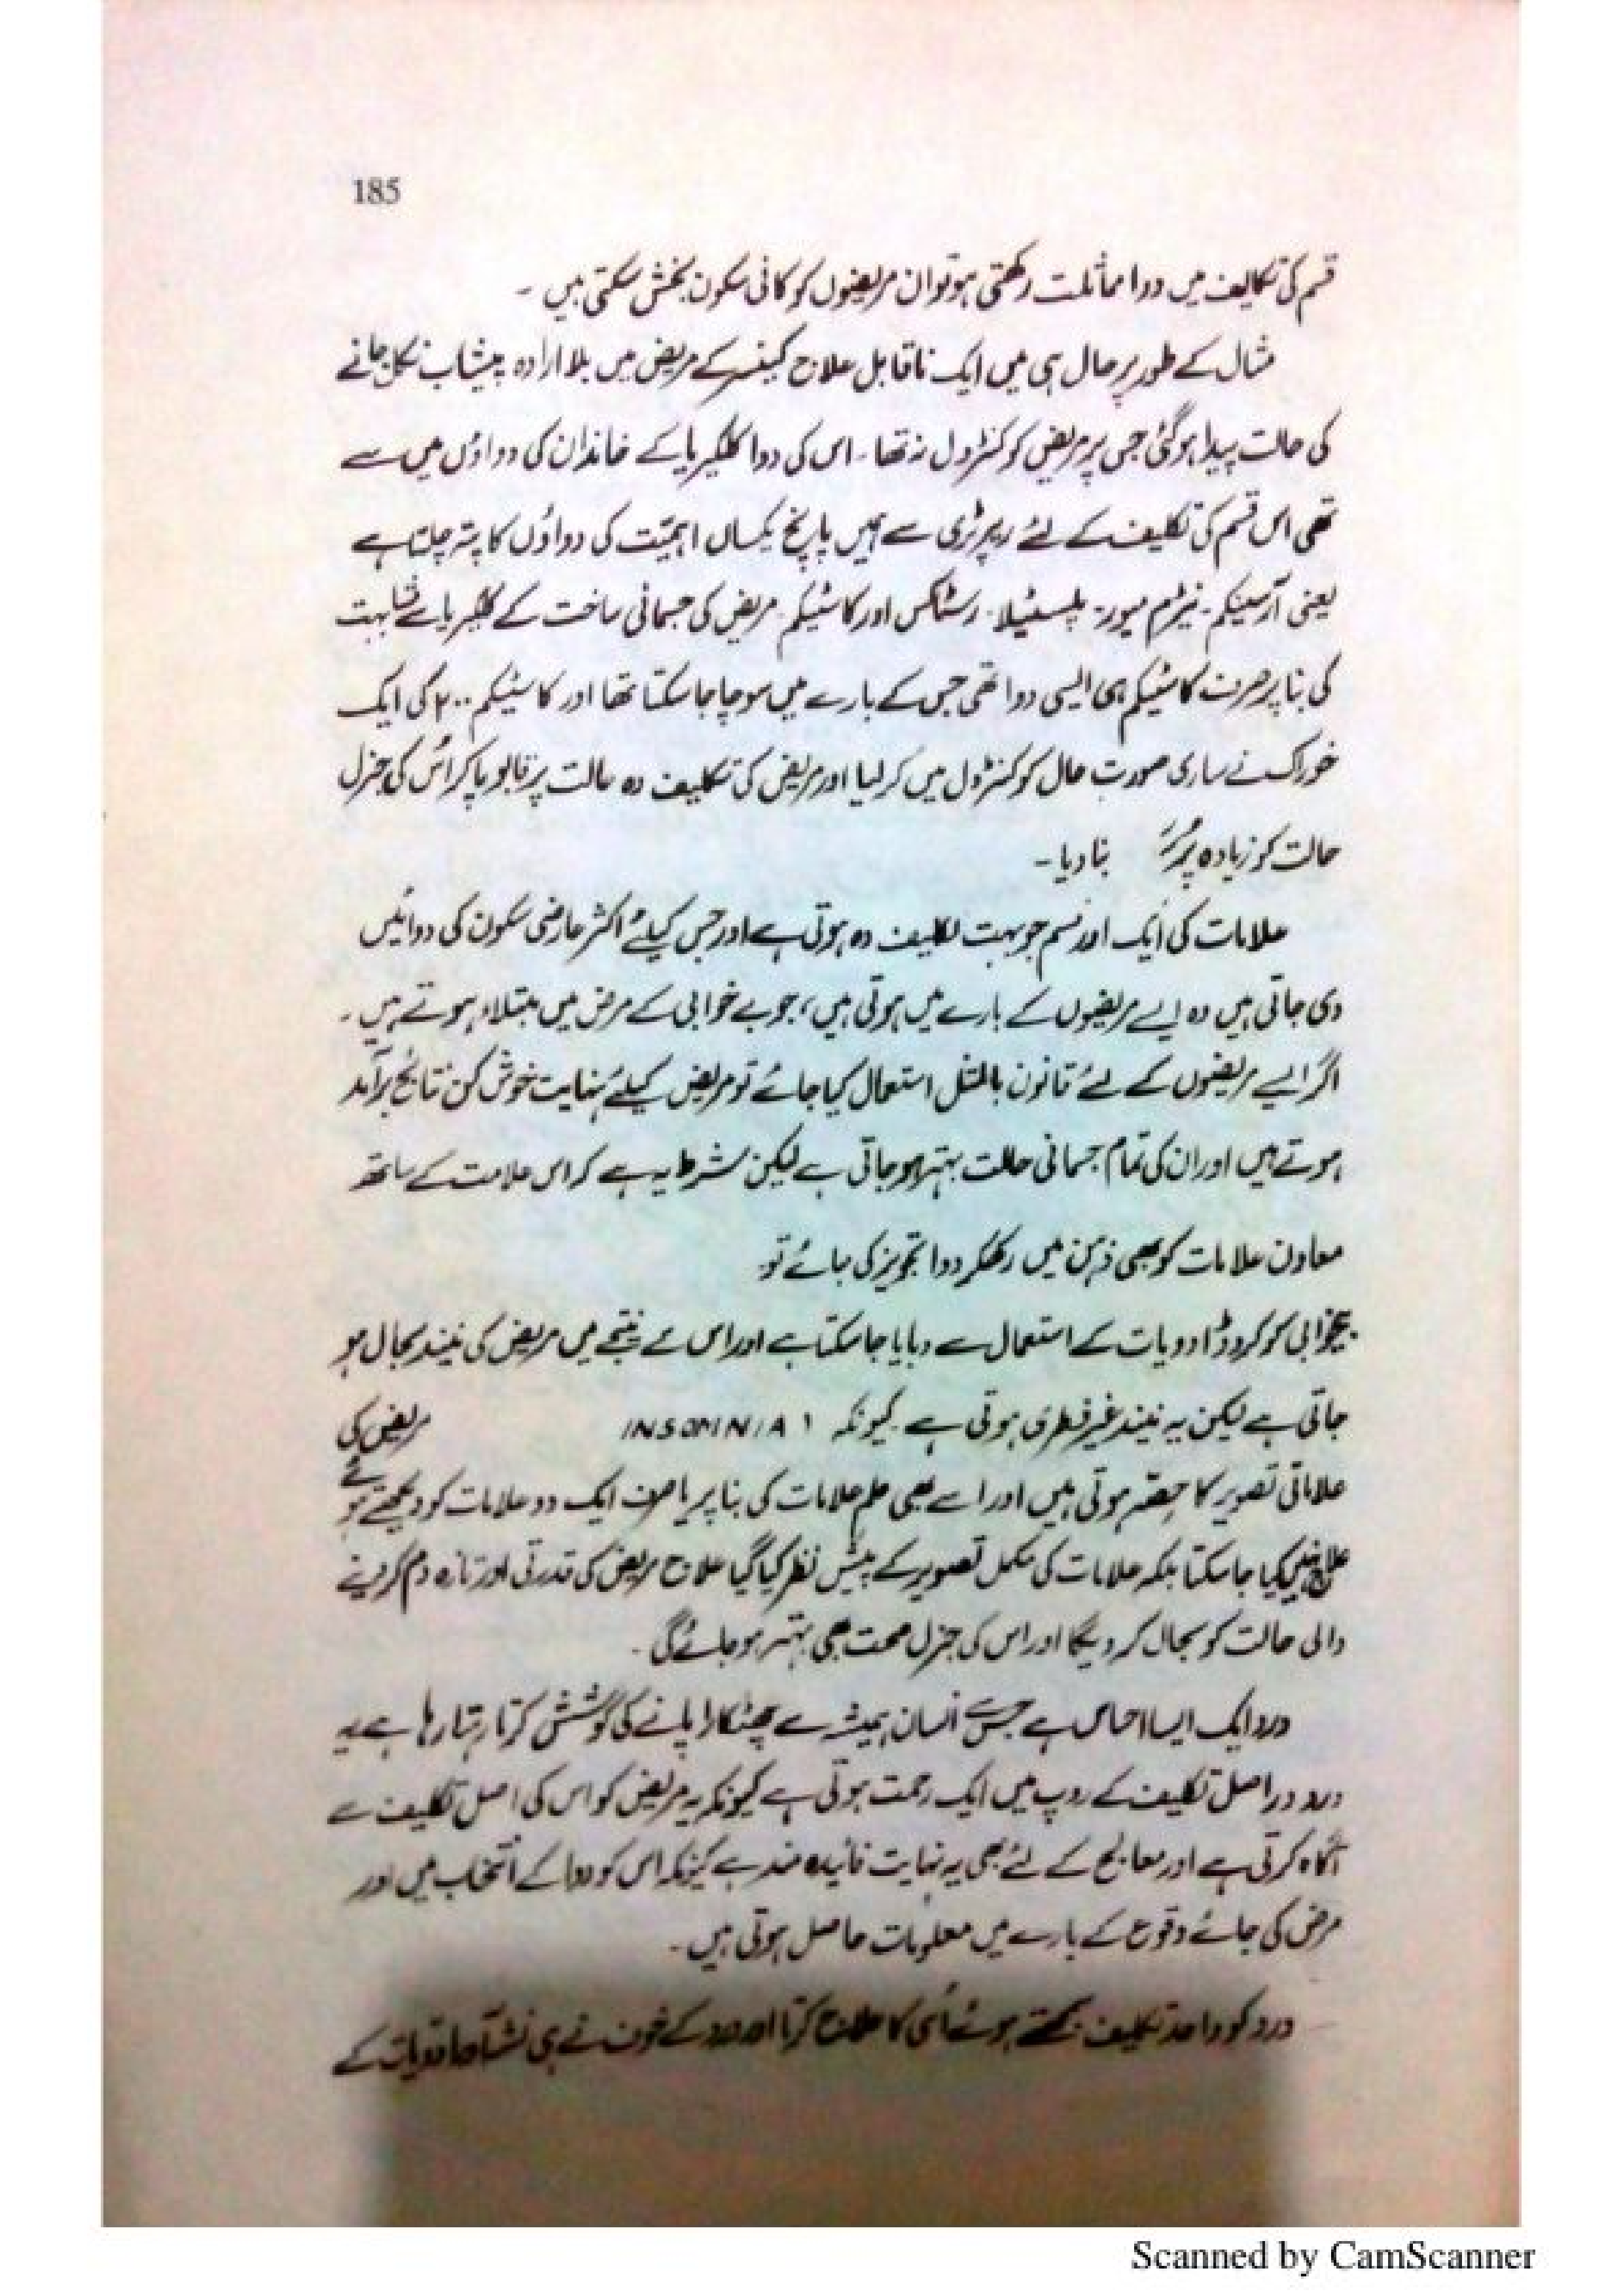 185
قسم کی تکالیف میں دوا مماثلت رکھتی ہو تو ان مریضوں کو کافی سکون بخش سکتی ہیں ۔
مثال کے طور پر حال ہی میں ایک ناقابل علاج کینسر کے مریض میں بلا ارادہ پیشاب نکل جانے
کی حالت پیدا ہو گئی جس پر مریض کو کنٹرول نہ تھا ۔ اس کی دوا کلکیریا کے خاندان کی دواؤں میں سے
تھی اس قسم کی تکلیف کے لئے ریپرٹری سے ہمیں پانچ یکساں اہمیّت کی دواؤں کا پتہ چلتا ہے
یعنی آرسینیکم ۔ نیٹرم میور ۔ پلسٹیلا ۔ رسٹاکس اور کاسٹیکم ۔ مریض کی جسمانی ساخت کے کلکیریا سے مشابہت
کی بنا پر صرف کاسٹیکم ہی ایسی دوا تھی جس کے بارے میں سوچا جا سکتا تھا اور کاسٹیکم ۲۰۰ کی ایک
خوراک نے ساری صورتِ حال کو کنٹرول میں کر لیا اور مریض کی تکلیف دہ حالت پر قابو پا کر اُس کی جنرل
حالت کو زیادہ بنا دیا ۔
علامات کی ایک اور قسم جو بہت تکلیف دہ ہوتی ہے اور جس کیلئے اکثر عارضی سکون کی دوائیں
دی جاتی ہیں وہ ایسے مریضوں کے بارے میں ہوتی ہیں ، جو بے خوابی کے مرض میں مبتلاء ہوتے ہیں ۔
اگر ایسے مریضوں کے لئے قانون بالمثل استعمال کیا جائے تو مریض کیلئے نہایت خوش کن نتائج برآمد
ہوتے ہیں اور ان کی تمام جسمانی حالت بہتر ہو جاتی ہے لیکن شرط یہ ہے کہ اس علامت کے ساتھ
معاون علامات کو بھی ذہن میں رکھکر دوا تجویز کی جائے تو
بیخوابی کو کروڈ ادویات کے استعمال سے دبایا جا سکتا ہے اور اس کے نتیجے میں مریض کی نیند بحال ہو
جاتی ہے لیکن یہ نیند غیر فطری ہوتی ہے ۔ کیونکہ INSOMNIA مریض کی
علاماتی تصویر کا حصّہ ہوتی ہیں اور اسے بھی علم علامات کی بنا پر یا صرف ایک دو علامات کو دیکھتے ہوئے
علاج نہیں کیا جا سکتا بلکہ علامات کی مکمل تصویر کے پیش نظر کیا گیا علاج مریض کی قدرتی اور تازہ دم کر دینے
والی حالت کو بحال کر دیگا اور اس کی جنرل صحت بھی بہتر ہو جائے گی ۔
درد ایک ایسا احساس ہے جس سے انسان ہمیشہ سے چھٹکارا پانے کی کوشش کرتا رہتا رہا ہے یہ
درد دراصل تکلیف کے روپ میں ایک رحمت ہوتی ہے کیونکہ یہ مریض کو اس کی اصل تکلیف سے
آگاہ کرتی ہے اور معالج کے لئے بھی یہ نہایت فائدہ مند ہے کیونکہ اس کو دوا کے انتخاب میں اور
مرض کی جائے وقوع کے بارے میں معلومات حاصل ہوتی ہیں ۔
درد کو واحد تکلیف سمجھتے ہوئے اُسی کا علاج کرنا اور درد کے خوف نے ہی نشہ آور ادویات کے
Scanned by CamScanner